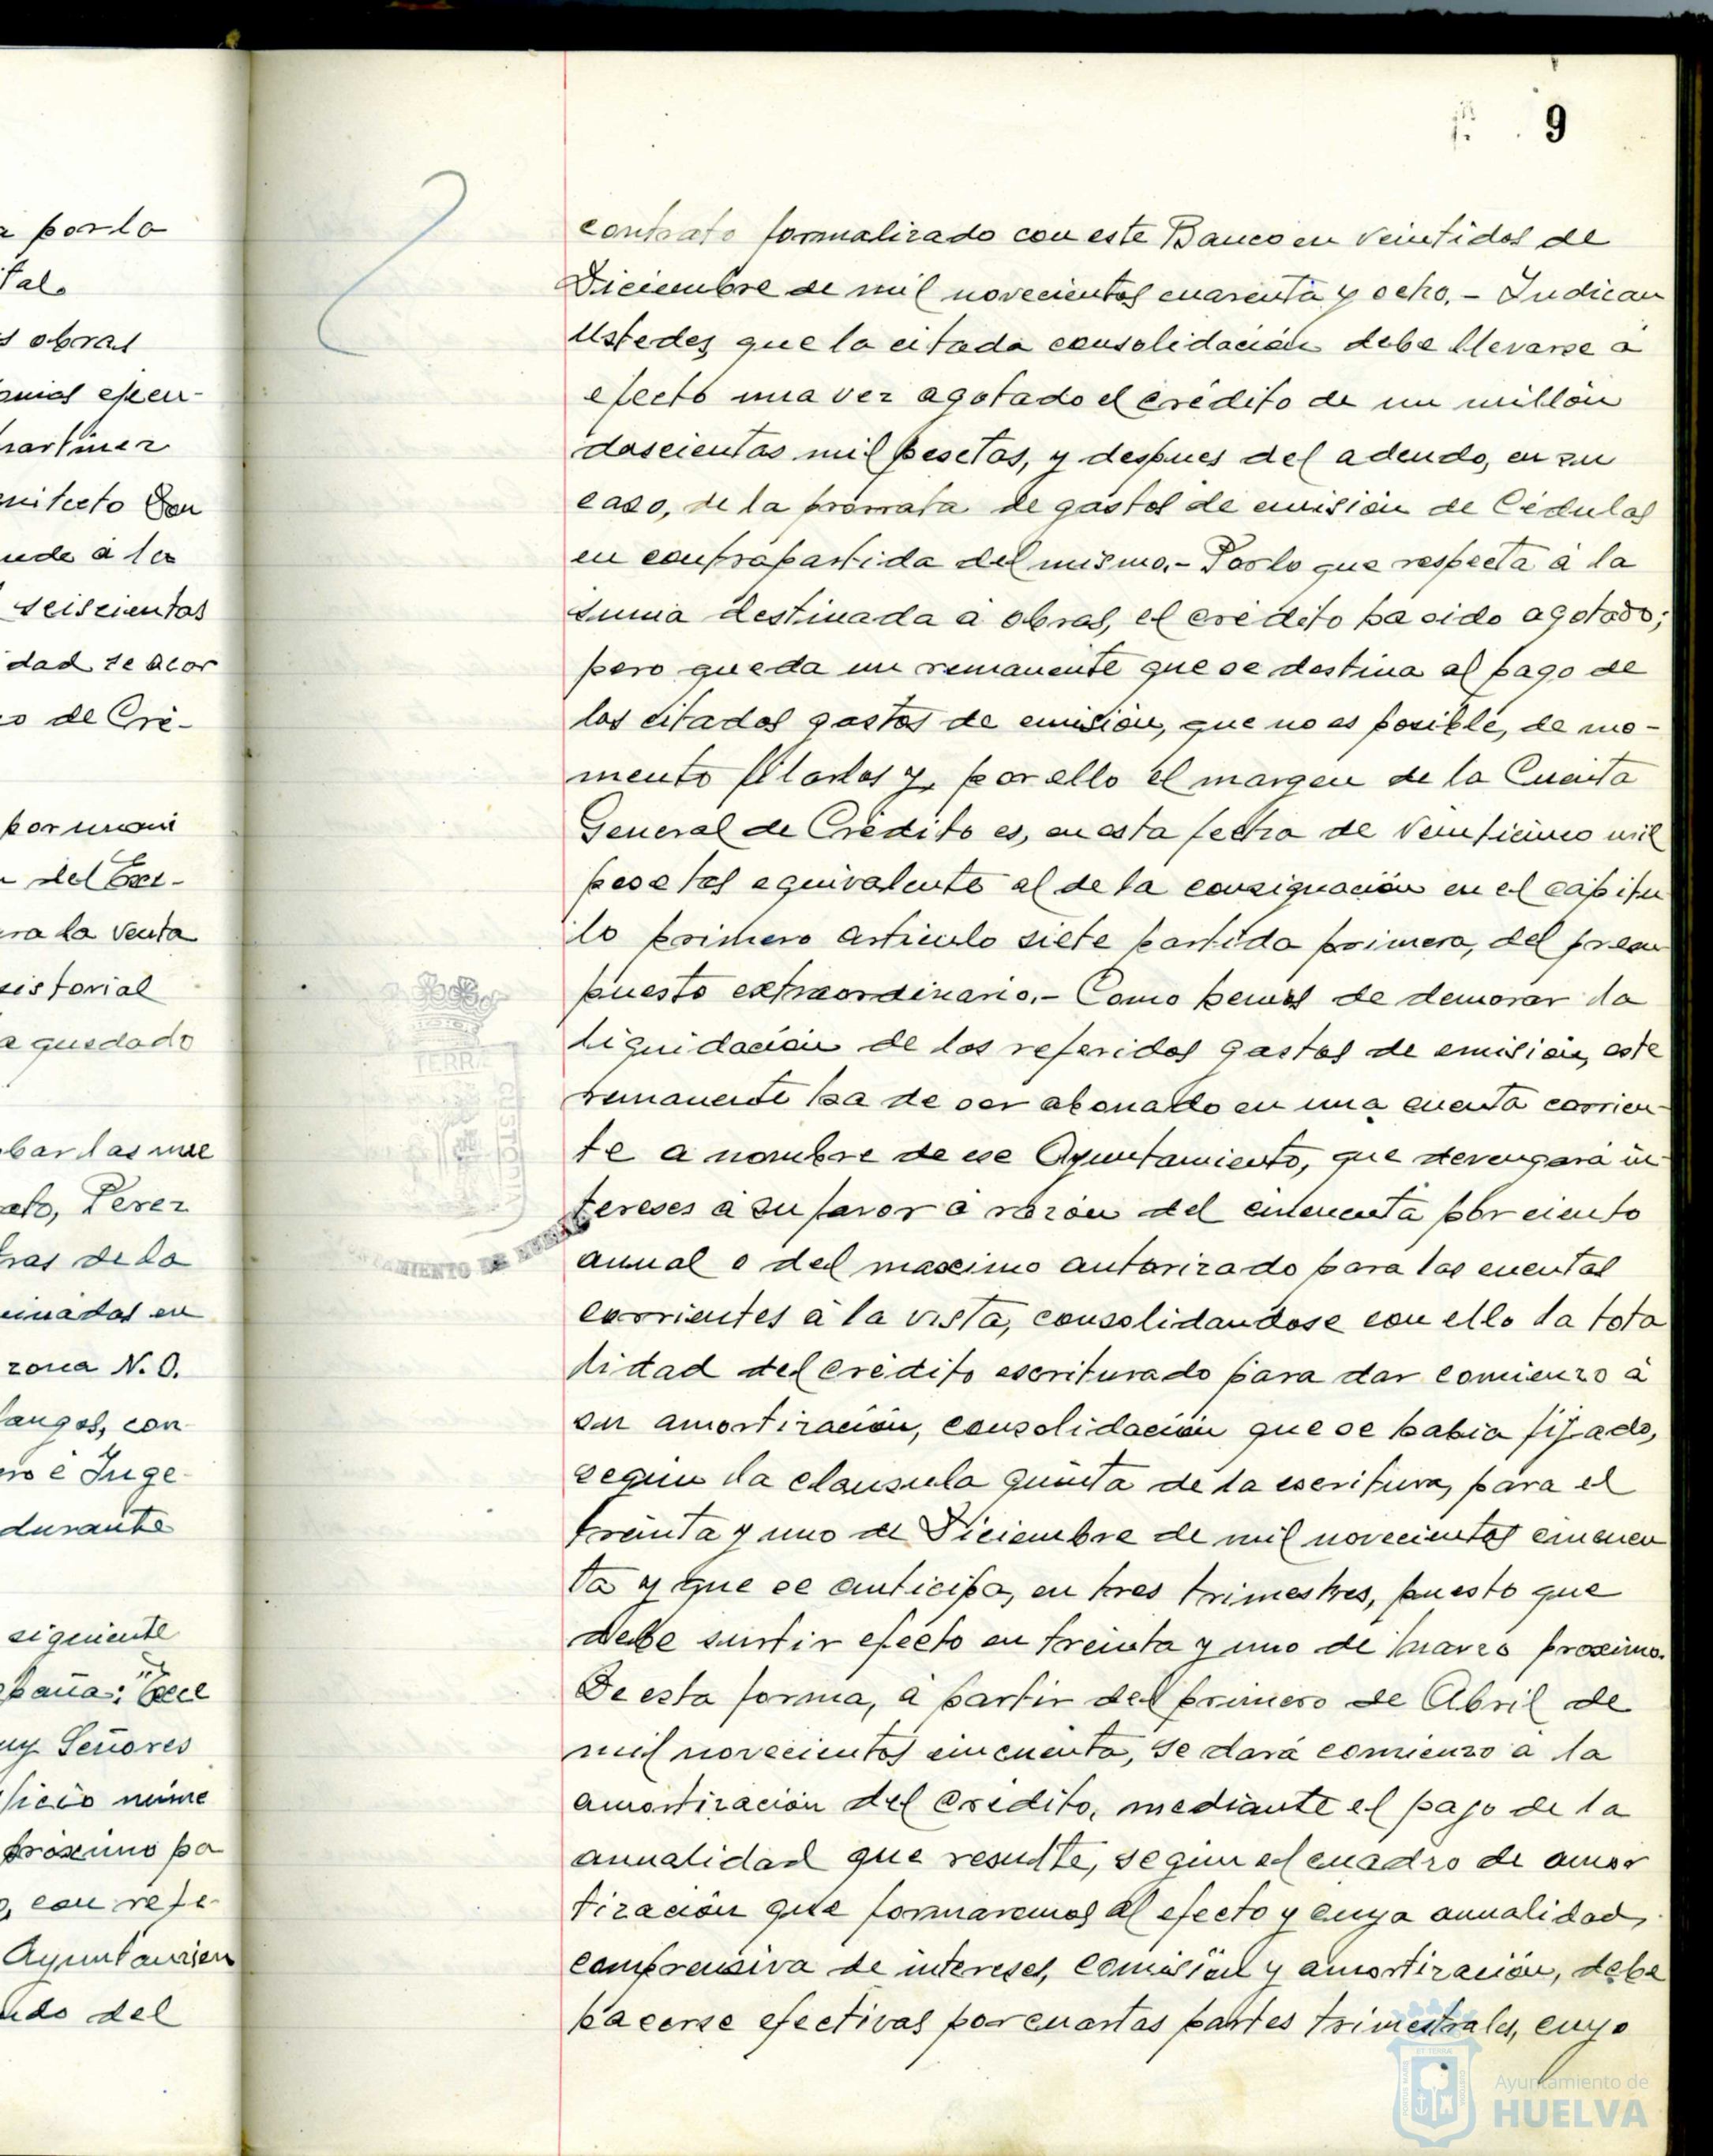 9
a por la
tal.
s obras
omios ejecu-
Martinez
quitecto Don
ude á la
seiscientas
dad se acor
co de Cré-
por unani
del Exc-
ra la venta
sistorial
a quedado
bar las nue
ato, Perez
ras de la
uinadas en
zona N.O.
langos, con
ero é Inge-
durante
siguiente
paña: "Exce
uy Señores
ficio núme
próximo pa
o, con refe-
Ayuntamien
ado del
contrato formalizado con este Banco en veintidos de
Diciembre de mil novecientos cuarenta y ocho.- Indican
Ustedes que la citada consolidación debe llevarse á
efecto una vez agotado el crédito de un millón
doscientas mil pesetas, y despues del adeudo, en su
caso, de la prorrata de gastos de emisión de Cédulas
en contrapartida del mismo.- Por lo que respecta á la
suma destinada á obras, el crédito ha sido agotado;
pero queda un remanente que se destina al pago de
los citados gastos de emisión, que no es posible, de mo-
mento fijarlos y, por ello el margen de la Cuenta
General de Crédito es, en esta fecha de veinticinco mil
pesetas equivalente al de la consignación en el capitu
lo primero articulo siete partida primera, del presu
puesto extraordinario.- Como hemos de demorar la
liquidación de los referidos gastos de emisión, este
remanente ha de ser abonado en una cuenta corrien-
te a nombre de ese Ayuntamiento, que devengará in-
tereses á su favor á razón del cincuenta por ciento
anual o del maximo autorizado para las cuentas
corrientes á la vista, consolidandose con ello la tota
lidad del crédito escriturado para dar comienzo á
su amortización, consolidación que se habia fijado,
segun la clausula quinta de la escritura, para el
treinta y uno de Diciembre de mil novecientos cincuen
ta y que se anticipa, en tres trimestres, puesto que
debe surtir efecto en treinta y uno de marzo proximo.
De esta forma, á partir del primero de Abril de
mil novecientos cincuenta, se dará comienzo á la
amortización del crédito, mediante el pago de la
anualidad que resulte, segun el cuadro de amor
tización que formaremos al efecto y cuya anualidad,
comprensiva de intereses, comisión y amortización, debe
hacerse efectivas por cuartas partes trimestrales, cuyo
TERRÆ
CUSTODIA
AYUNTAMIENTO DE HUELVA
Ayuntamiento de
HUELVA